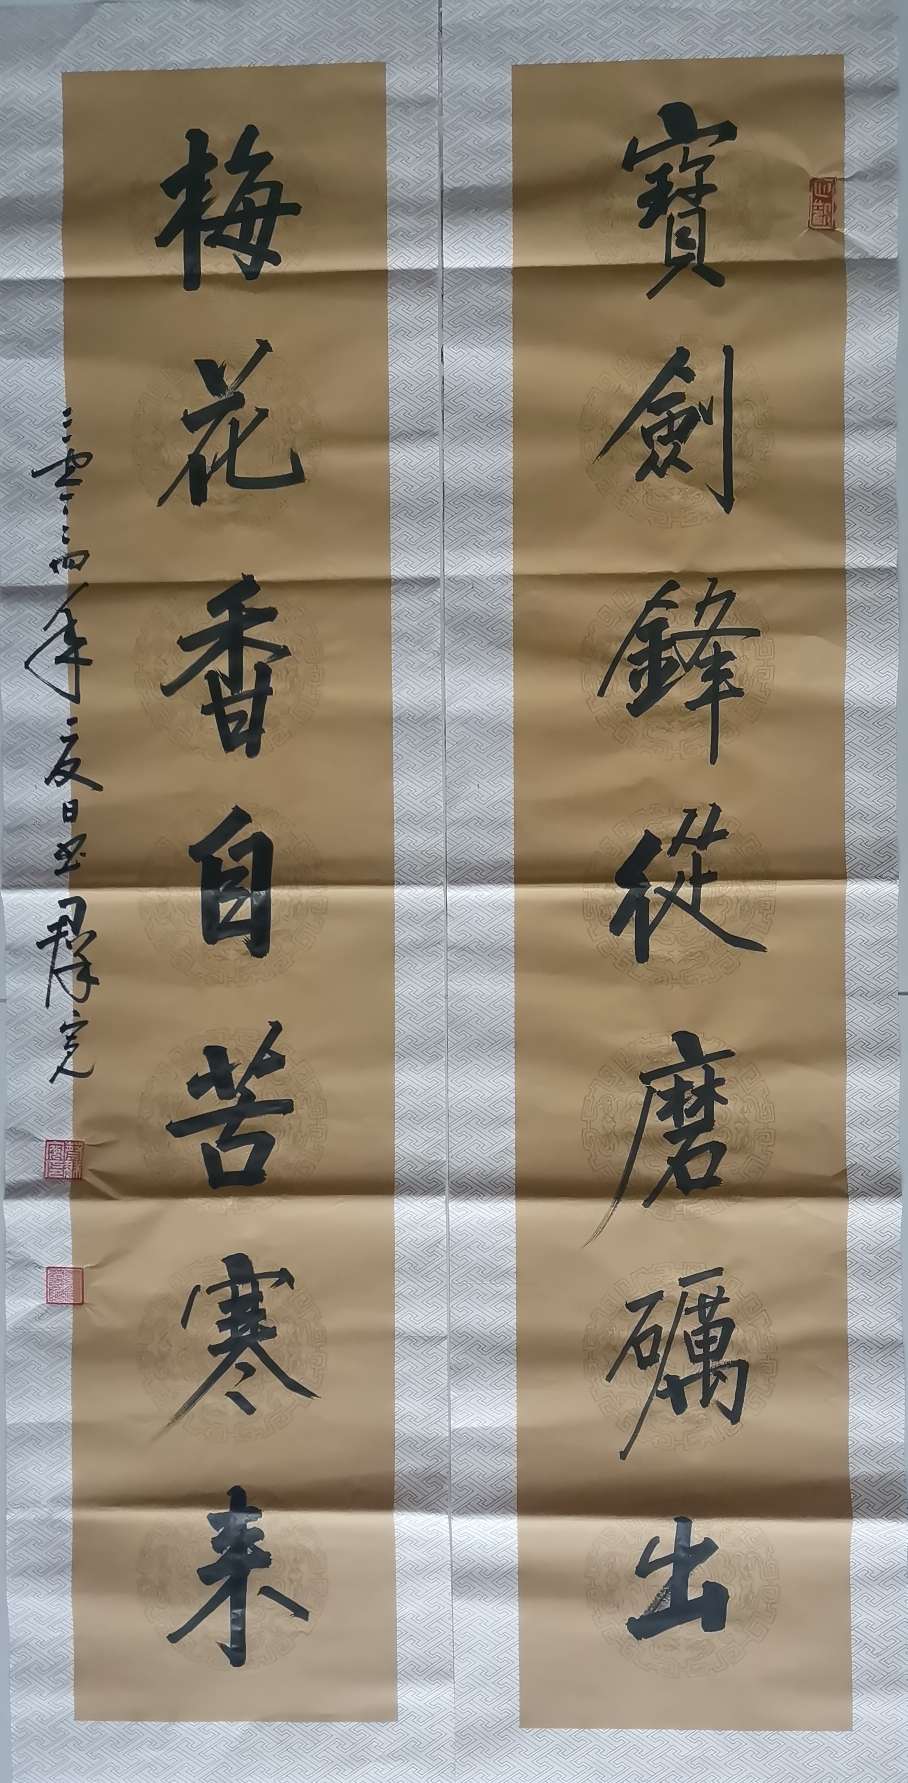 寶劍鋒從磨礪出
梅花香自苦寒来
二零二四年夏日书群宽